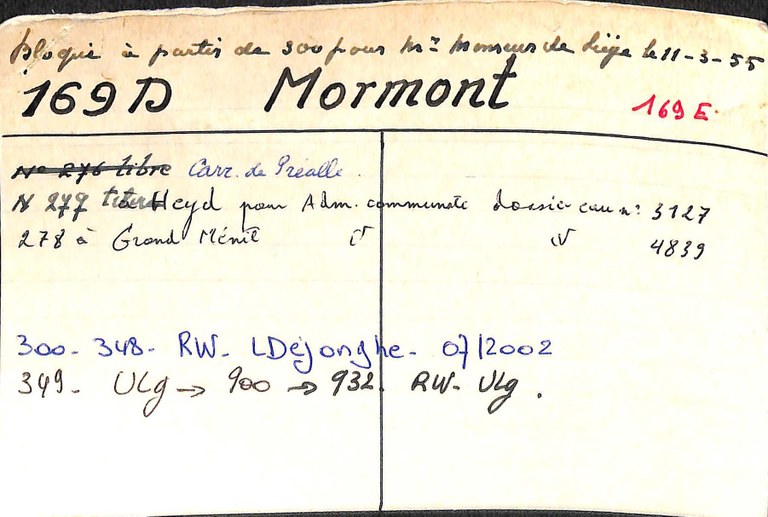 Bloqué à partir de 300 pour Mr Monseur de Liège le 11-3-55
169 D Mormont 169 E.
N° 276 libre Carr. de Préalle.
N 277 à Heyd pour Adm. communale dossier eau n: 3127
278 à Grand Ménil 4839
300- 348- RW- LDejonghe- 07/2002
349- ULg → 900 → 932. RW- Ulg.